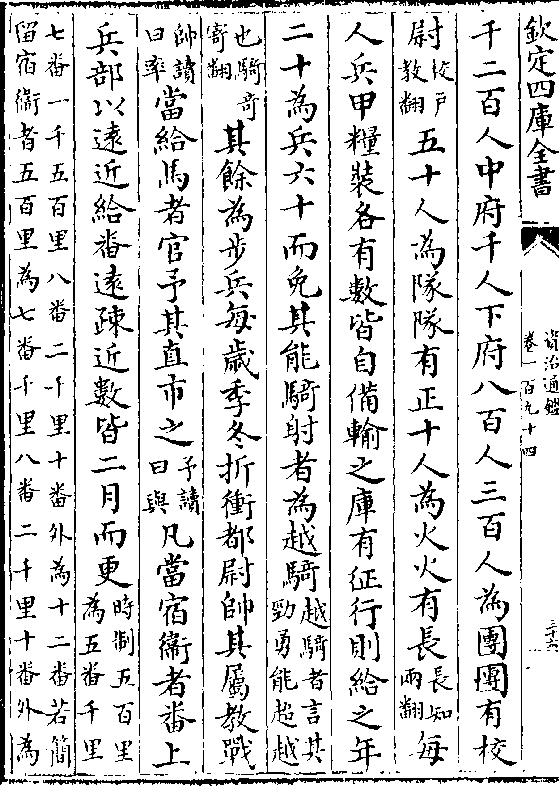 欽定四庫全書
資治通鑑
卷一百九十四
千二百人中府千人下府八百人三百人為團團有校
尉校戶教翻五十人為隊隊有正十人為火火有長長知兩翻每
人兵甲糧裝各有數皆自備輸之庫有征行則給之年
二十為兵六十而免其能騎射者為越騎越騎者言其勁勇能超越
也騎奇寄翻其餘為步兵每歲季冬折衝都尉帥其屬教戰
帥讀曰率當給馬者官予其直市之予讀曰與凡當宿衞者番上
兵部以遠近給番遠疎近數皆二月而更時制五百里為五番千里
七番一千五百里八番二千里十番外為十二番若簡
留宿衞者五百里為七番千里八番二千里十番外為